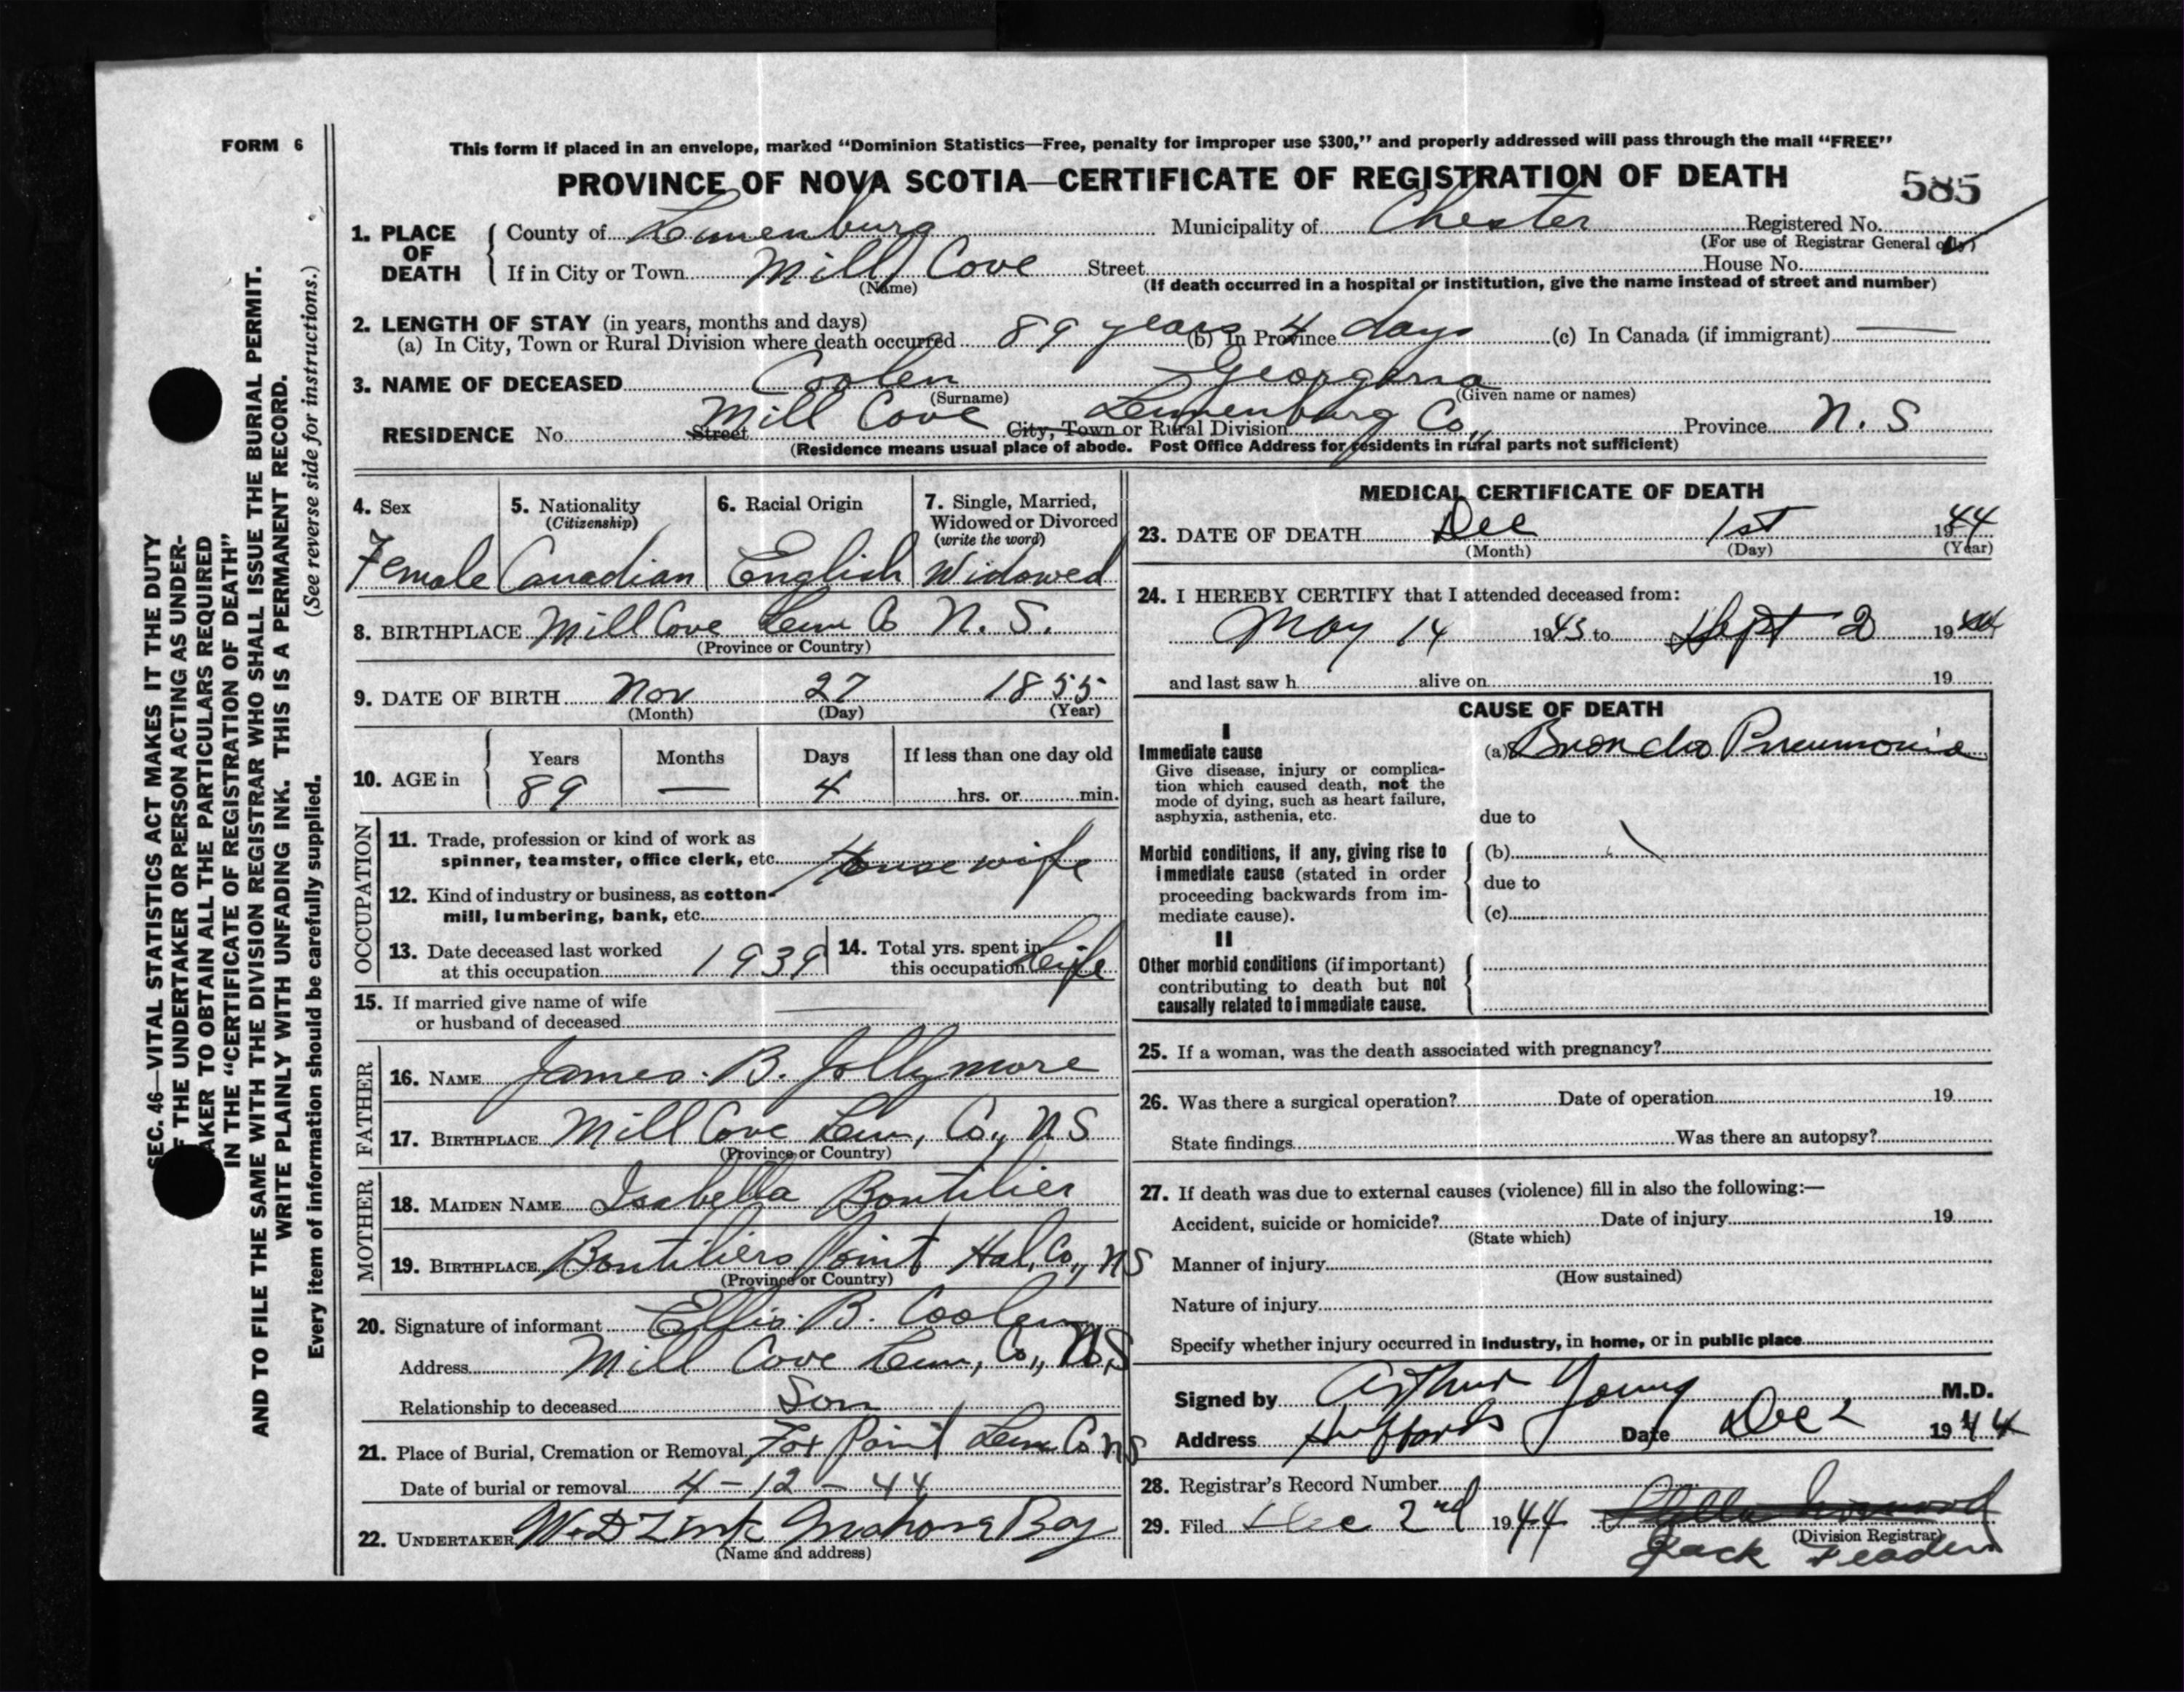 FORM 6
This form if placed in an envelope, marked "Dominion Statistics—Free, penalty for improper use $300," and properly addressed will pass through the mail "FREE"
PROVINCE OF NOVA SCOTIA—CERTIFICATE OF REGISTRATION OF DEATH
585
1. PLACE OF DEATH
County of Lunenburg Municipality of Chester Registered No.
(For use of Registrar General only)
If in City or Town Mill Cove Street House No.
(Name) (If death occurred in a hospital or institution, give the name instead of street and number)
2. LENGTH OF STAY (in years, months and days)
(a) In City, Town or Rural Division where death occurred 89 years (b) In Province 4 days (c) In Canada (if immigrant) —
3. NAME OF DECEASED Coolen Georgina
(Surname) (Given name or names)
RESIDENCE No. Street Mill Cove City, Town or Rural Division Lunenburg Co., Province N. S
(Residence means usual place of abode. Post Office Address for residents in rural parts not sufficient)
4. Sex
Female
5. Nationality
(Citizenship)
Canadian
6. Racial Origin
English
7. Single, Married,
Widowed or Divorced
(write the word)
Widowed
8. BIRTHPLACE Mill Cove Lun Co N. S.
(Province or Country)
9. DATE OF BIRTH Nov 27 1855
(Month) (Day) (Year)
10. AGE in
Years Months Days If less than one day old
89 — 4 hrs. or min.
OCCUPATION
11. Trade, profession or kind of work as
spinner, teamster, office clerk, etc. Housewife
12. Kind of industry or business, as cotton-
mill, lumbering, bank, etc.
13. Date deceased last worked
at this occupation 1939
14. Total yrs. spent in
this occupation Life
15. If married give name of wife
or husband of deceased —
FATHER
16. NAME James. B. Jollymore
17. BIRTHPLACE Mill Cove Lun, Co., N S
(Province or Country)
MOTHER
18. MAIDEN NAME Isabella Boutilier
19. BIRTHPLACE Boutiliers Point Hal, Co., N S
(Province or Country)
20. Signature of informant Ellis. B. Coolen
Address Mill Cove Lun, Co., N.S
Relationship to deceased Son
21. Place of Burial, Cremation or Removal Fox Point Lun Co NS
Date of burial or removal 4 - 12 - 44
22. UNDERTAKER W.D Zink Mahone Bay
(Name and address)
MEDICAL CERTIFICATE OF DEATH
23. DATE OF DEATH Dec 1st 1944
(Month) (Day) (Year)
24. I HEREBY CERTIFY that I attended deceased from:
May 14 1943 to Sept 2 1944
and last saw h alive on 19
CAUSE OF DEATH
I
Immediate cause
Give disease, injury or complica-
tion which caused death, not the
mode of dying, such as heart failure,
asphyxia, asthenia, etc.
(a) Broncho Pneumonia
due to
Morbid conditions, if any, giving rise to
immediate cause (stated in order
proceeding backwards from im-
mediate cause).
(b)
due to
(c)
II
Other morbid conditions (if important)
contributing to death but not
causally related to immediate cause.
25. If a woman, was the death associated with pregnancy?
26. Was there a surgical operation? Date of operation 19
State findings Was there an autopsy?
27. If death was due to external causes (violence) fill in also the following:—
Accident, suicide or homicide? Date of injury 19
(State which)
Manner of injury
(How sustained)
Nature of injury
Specify whether injury occurred in industry, in home, or in public place
Signed by Arthur Young M.D.
Address Date Dec 2 1944
28. Registrar's Record Number
29. Filed Dec 2nd 1944
(Division Registrar)
Jack
SEC. 46—VITAL STATISTICS ACT MAKES IT THE DUTY
F THE UNDERTAKER OR PERSON ACTING AS UNDER-
AKER TO OBTAIN ALL THE PARTICULARS REQUIRED
IN THE "CERTIFICATE OF REGISTRATION OF DEATH"
AND TO FILE THE SAME WITH THE DIVISION REGISTRAR WHO SHALL ISSUE THE BURIAL PERMIT.
WRITE PLAINLY WITH UNFADING INK. THIS IS A PERMANENT RECORD.
Every item of information should be carefully supplied. (See reverse side for instructions.)